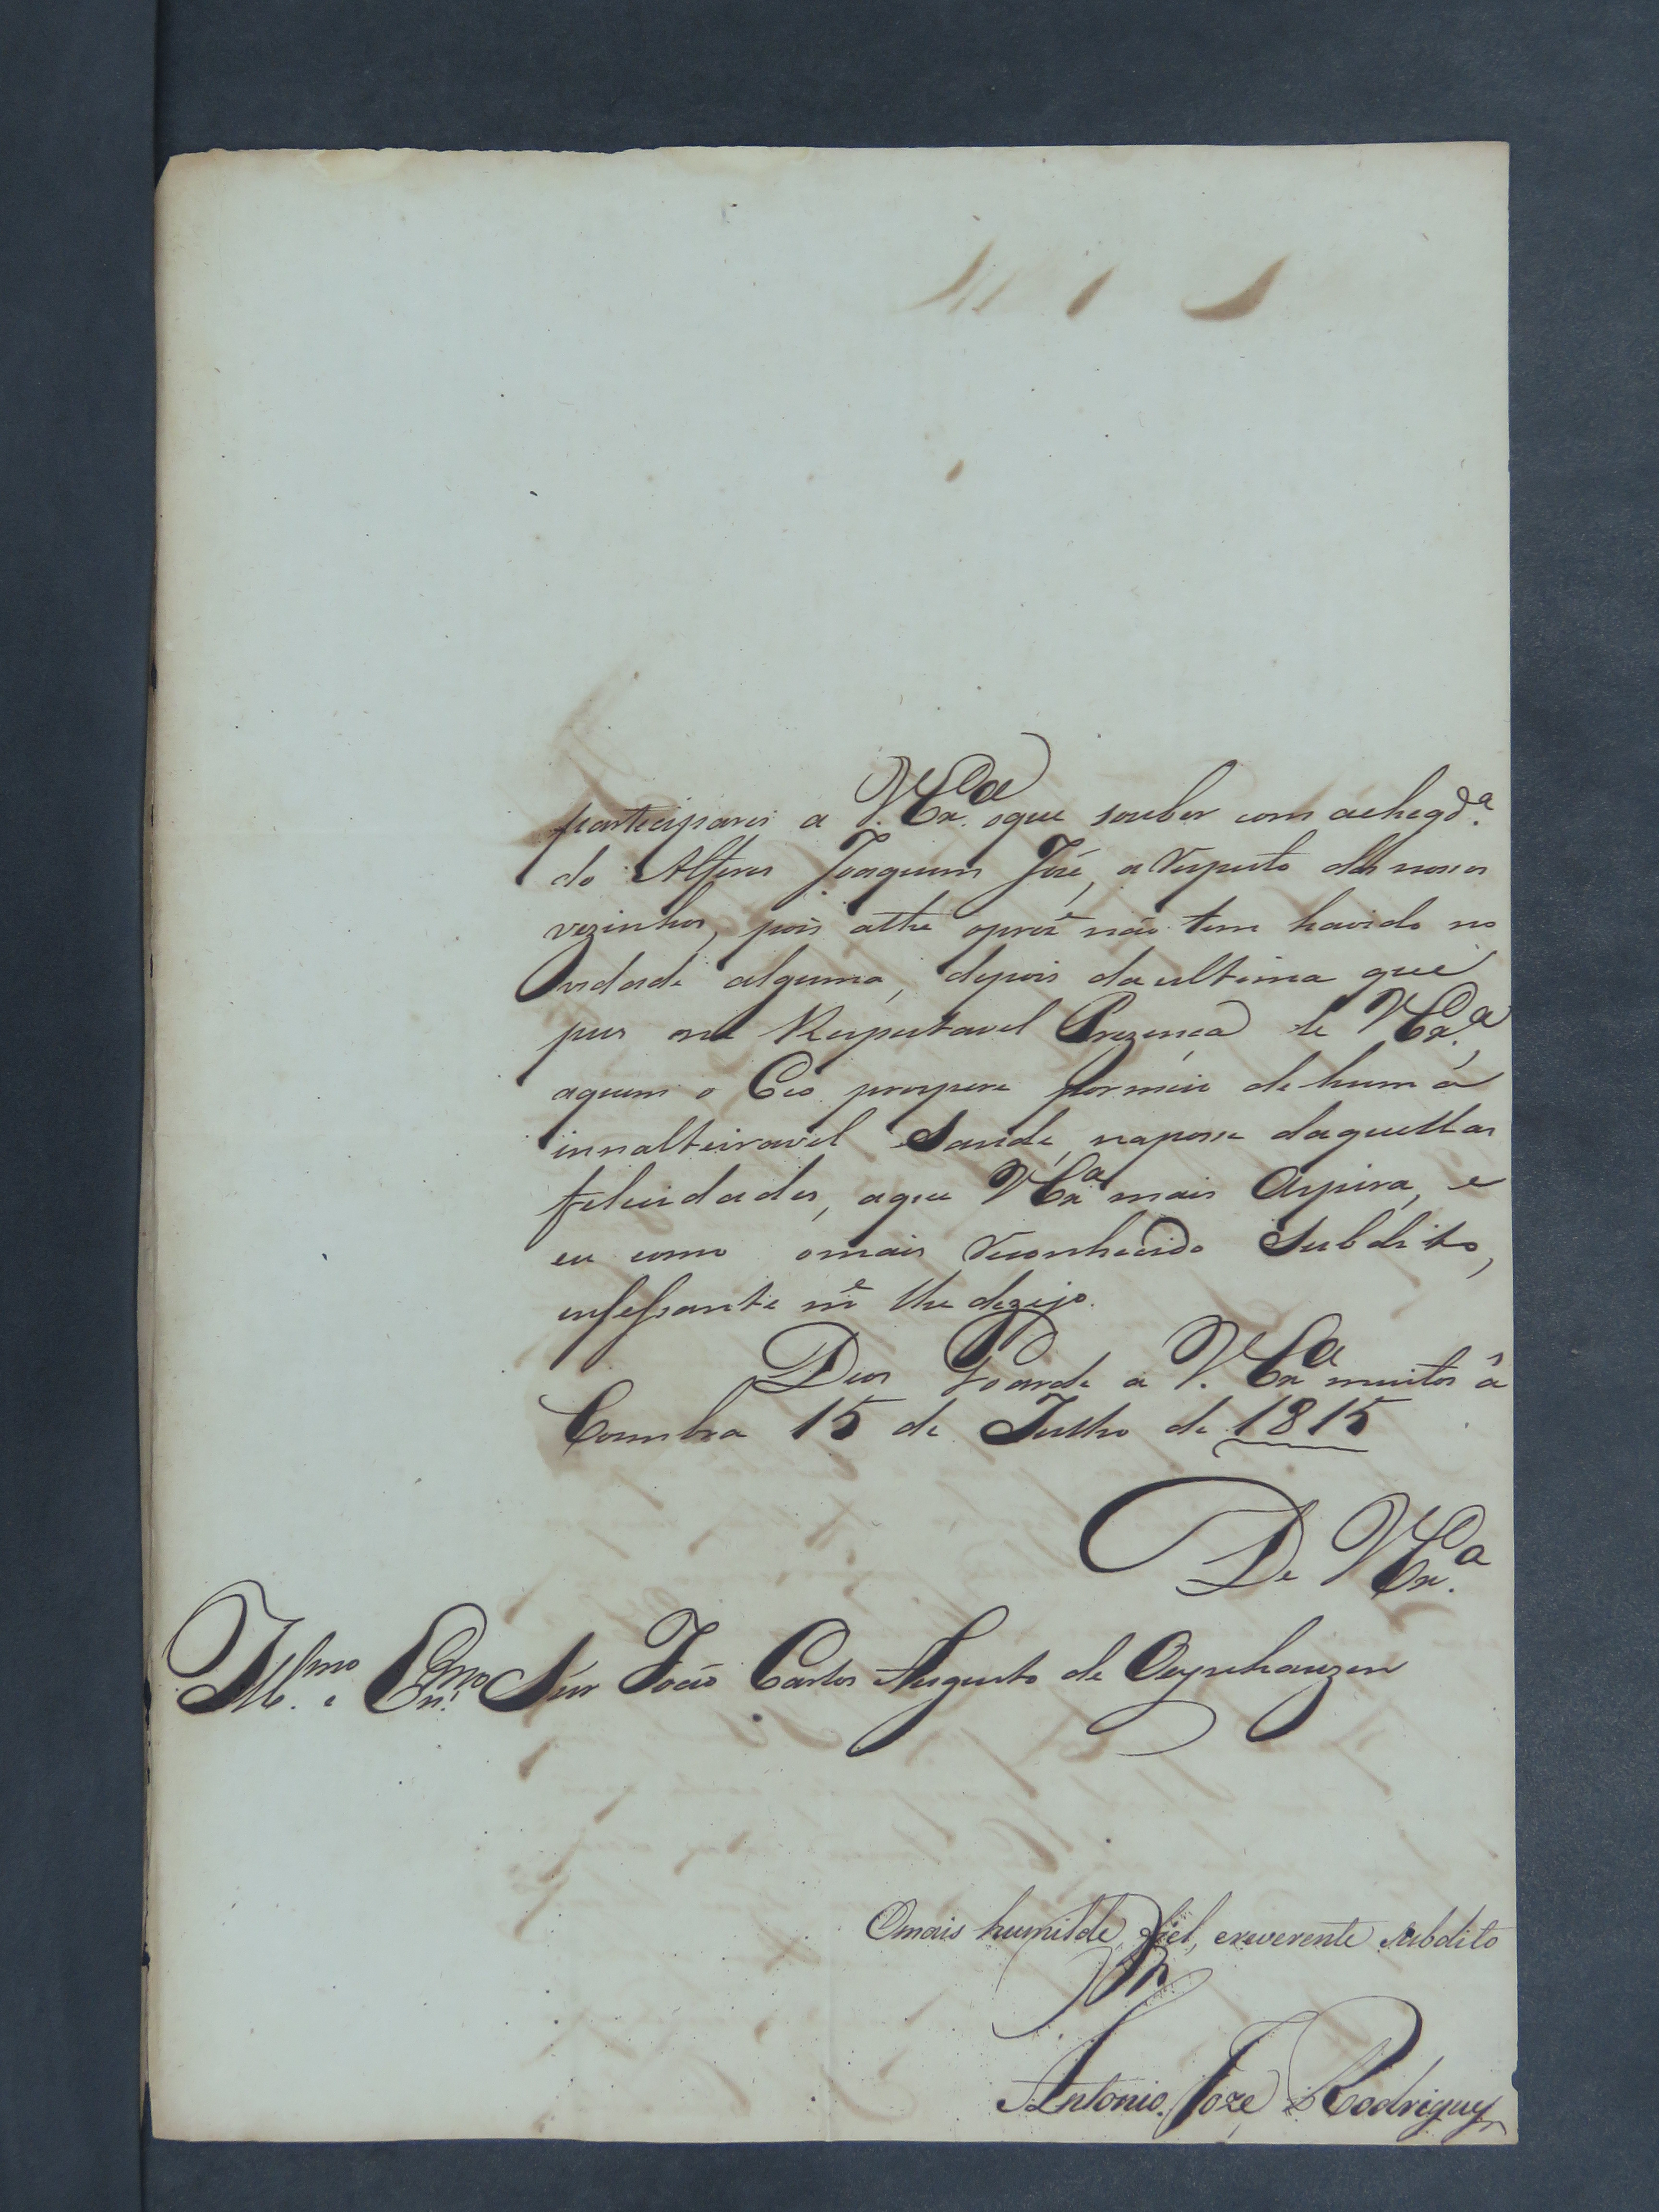 participarei a V. Exª. oque souber com achegdª.
do Alferes Joaquim José, a respeito dos nossos
vezinhos, pois athe oprezẽ não tem havido no
vidade alguma, depois da ultima que
pus na Respeitavel Prezença de V Exª.,
aquem o Ceo prospere por meio de hum a
innalteiravel Saude, naposse daquellas
felicidades, aque V Exª mais Aspira, e
eu como omais reconhecido Subdito,
insessante mẽ lhe dezejo.
Deos Goarde a V. Exª muitos âs
Coimbra 15 de Julho de 1815
De V Exª.
Illmo. e Exmo. Snr João Carlos Augusto de Oeynhauzen
Omais humilde, fiel, ereverente subdito
Antonio Joze Rodrigues